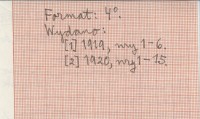 Format: 4°.
Wydano:
[1] 1919, nry 1-6.
[2] 1920, nry 1-15.